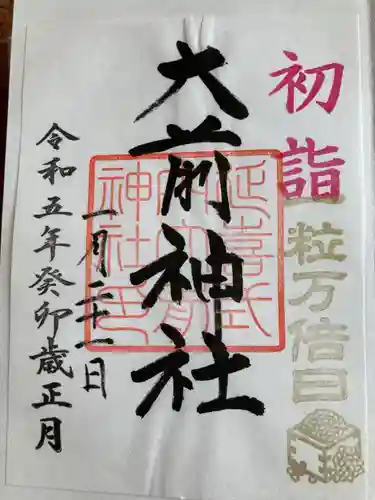 初詣
一粒万倍日
大前神社
延喜式
内大前
神社印
一月二十一日
令和五年癸卯歳正月